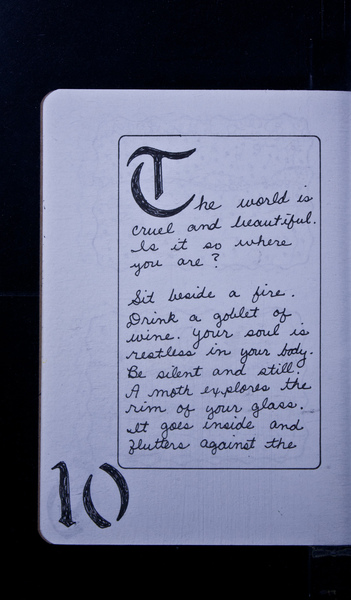 The world is
cruel and beautiful.
Is it so where
you are?
Sit beside a fire.
Drink a goblet of
wine. Your soul is
restless in your body.
Be silent and still.
A moth explores the
rim of your glass.
It goes inside and
flutters against the
10